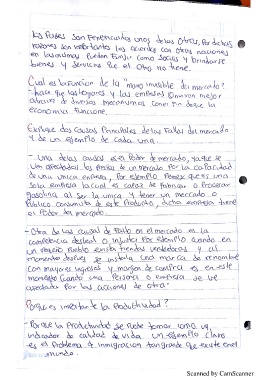 los Países son Pertenecientes unos de los Otros, Por dichas
razones son importantes los acuerdos con otras naciones
en las mismas Pueden fungir como socios y brindarse
bienes y Servicios que el Otro no tiene.
Cual es la función de la "mano invisible del mercado?
- hace que los hogares y las empresas
de diversos mecanismos con el fin de que la
economía funcione.
Explique dos Causas Principales de los Fallos del mercado
y de un ejemplo de cada una.
- Una de las causas es el Poder de mercado, ya que se
los Precios de un mercado Por la capacidad
de una unica empresa, Por ejemplo Parece que es una
sola empresa la cual es capaz de fabricar o Procesar
gasolina al ser la unica y tener un mercado o
Público consumista de este Producto, dicha empresa tiene
el Poder del mercado.
- Otra de las causas de fallo en el mercado es la
competencia desleal o injusta Por Ejemplo cuando en
un espacio Público existen tiendas vendedoras y al
momento después se instala una marca de renombre
con mayores ingresos y margen de compra es en este
momento cuando una Persona o empresa se ve
afectada Por las acciones de otra.
Porque es importante la Productividad?
- Porque la Productividad se Puede tomar como un
indicador de calidad de vida, un ejemplo claro
es el Problema inmigracion tan grande que existe en el
mundo.
Scanned by CamScanner